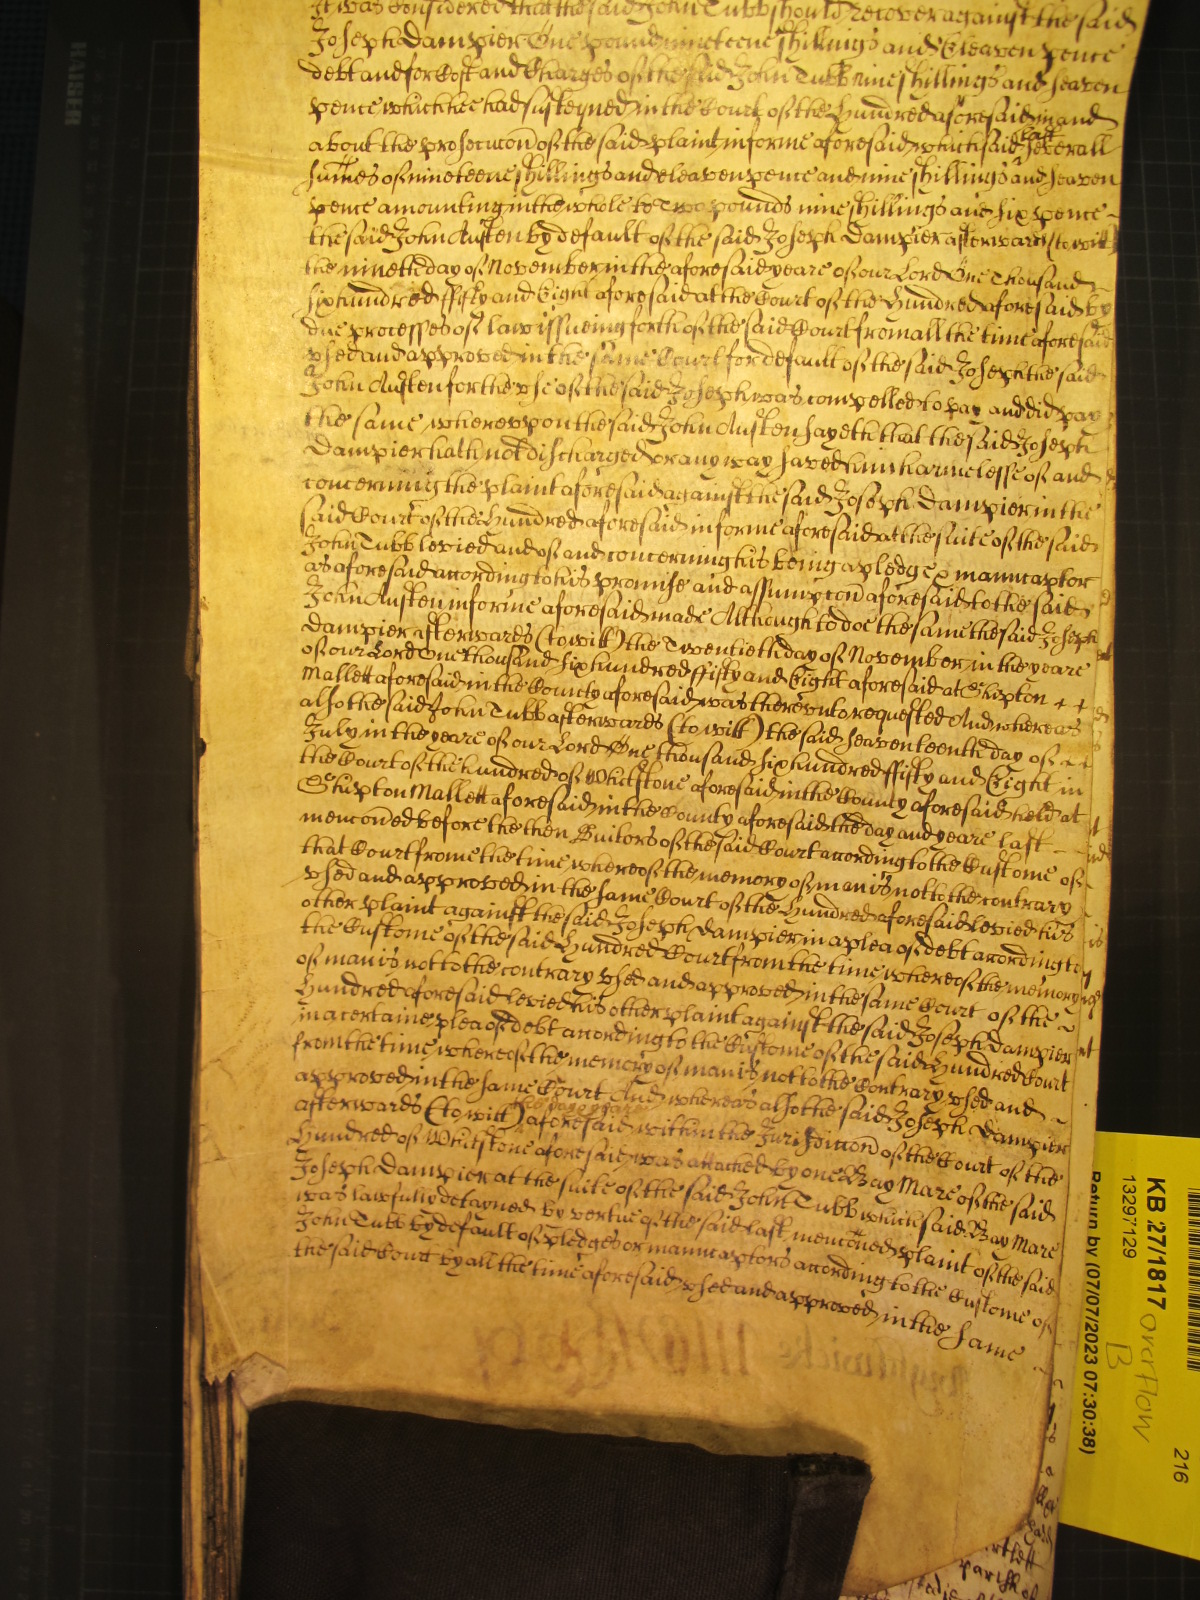 It was considered that the said John Tubb should recover against the said
Joseph Dampier One pound nineteene shillings and Eleaven pence
debt and for Cost and Charges of the said John Tubb nine shillings and seaven
pence which hee had susteyned in the Court of the Hundred aforesaid in and
about the prosecucon of the said plaint in forme aforesaid which said last severall
summes of nineteene shillings and eleaven pence and nine shillings and seaven
pence amounting in the whole to Two pounds nine shillings and six pence
the said John Austen by default of the said Joseph Dampier afterwards (to witt)
the nineth day of November in the aforesaid yeare of our Lord One Thousand
six hundred ffifty and Eight aforesaid at the Court of the Hundred aforesaid by
due processes of law issueing forth of the said Court from all the time aforesaid
vsed and approved in the same Court for default of the said Joseph the said
John Austen for the vse of the said Joseph was compelled to pay and did pay
the same whereupon the said John Austen sayeth that the said Joseph
Dampier hath not discharged or any way saved him harmelesse of and
concerning the plaint aforesaid against the said Joseph Dampier in the
said Court of the Hundred aforesaid in forme aforesaid at the suite of the said
John Tubb levied and of and concerning his being a pledge & manucaptor
as aforesaid according to his promise and assumpcon aforesaid to the said
John Austen in forme aforesaid made Although to doe the same the said Joseph
Dampier afterwards (to witt) the Twentieth day of November in the yeare
of our Lord One thousand six hundred ffifty and Eight aforesaid at Shipton
Mallett aforesaid in the County aforesaid was therevnto requested And whereas
also the said John Tubb afterwards (to witt) the said seaventeenth day of
July in the yeare of our Lord One thousand six hundred ffifty and Eight in
the Court of the hundred of Whitstone aforesaid in the County aforesaid held at
Shipton Mallett aforesaid in the County aforesaid the day and yeare last
menconed before the then Suitors of the said Court according to the Custome of
that Court frome the time whereof the memory of man is not to the contrary
vsed and approved in the same Court of the Hundred aforesaid levied his
other plaint against the said Joseph Dampier in a plea of debt according to
the Custome of the said Hundred Court from the time whereof the memory
of man is not to the contrary vsed and approved in the same Court of the
Hundred aforesaid levied his other plaint against the said Joseph Dampier
in a certaine plea of debt according to the Custome of the said Hundred Court
from the time whereof the memory of man is not to the Contrary vsed and
approved in the same Court And whereas also the said Joseph Dampier
afterwards (to witt) aforesaid within the Jurisdiccon of the Court of the
Hundred of Whitstone aforesaid was attached by one Bay Mare of the said
Joseph Dampier at the suite of the said John Tubb which said Bay Mare
was lawfully detayned by vertue of the said last menconed plaint of the said
John Tubb by default of pledges or manucaptors according to the Custome of
the said Court by all the time aforesaid vsed and approved in the same
KB 27/1817 overflow
B
13297129
Return by (07/07/2023 07:30:38)
216
KAISER
parish of